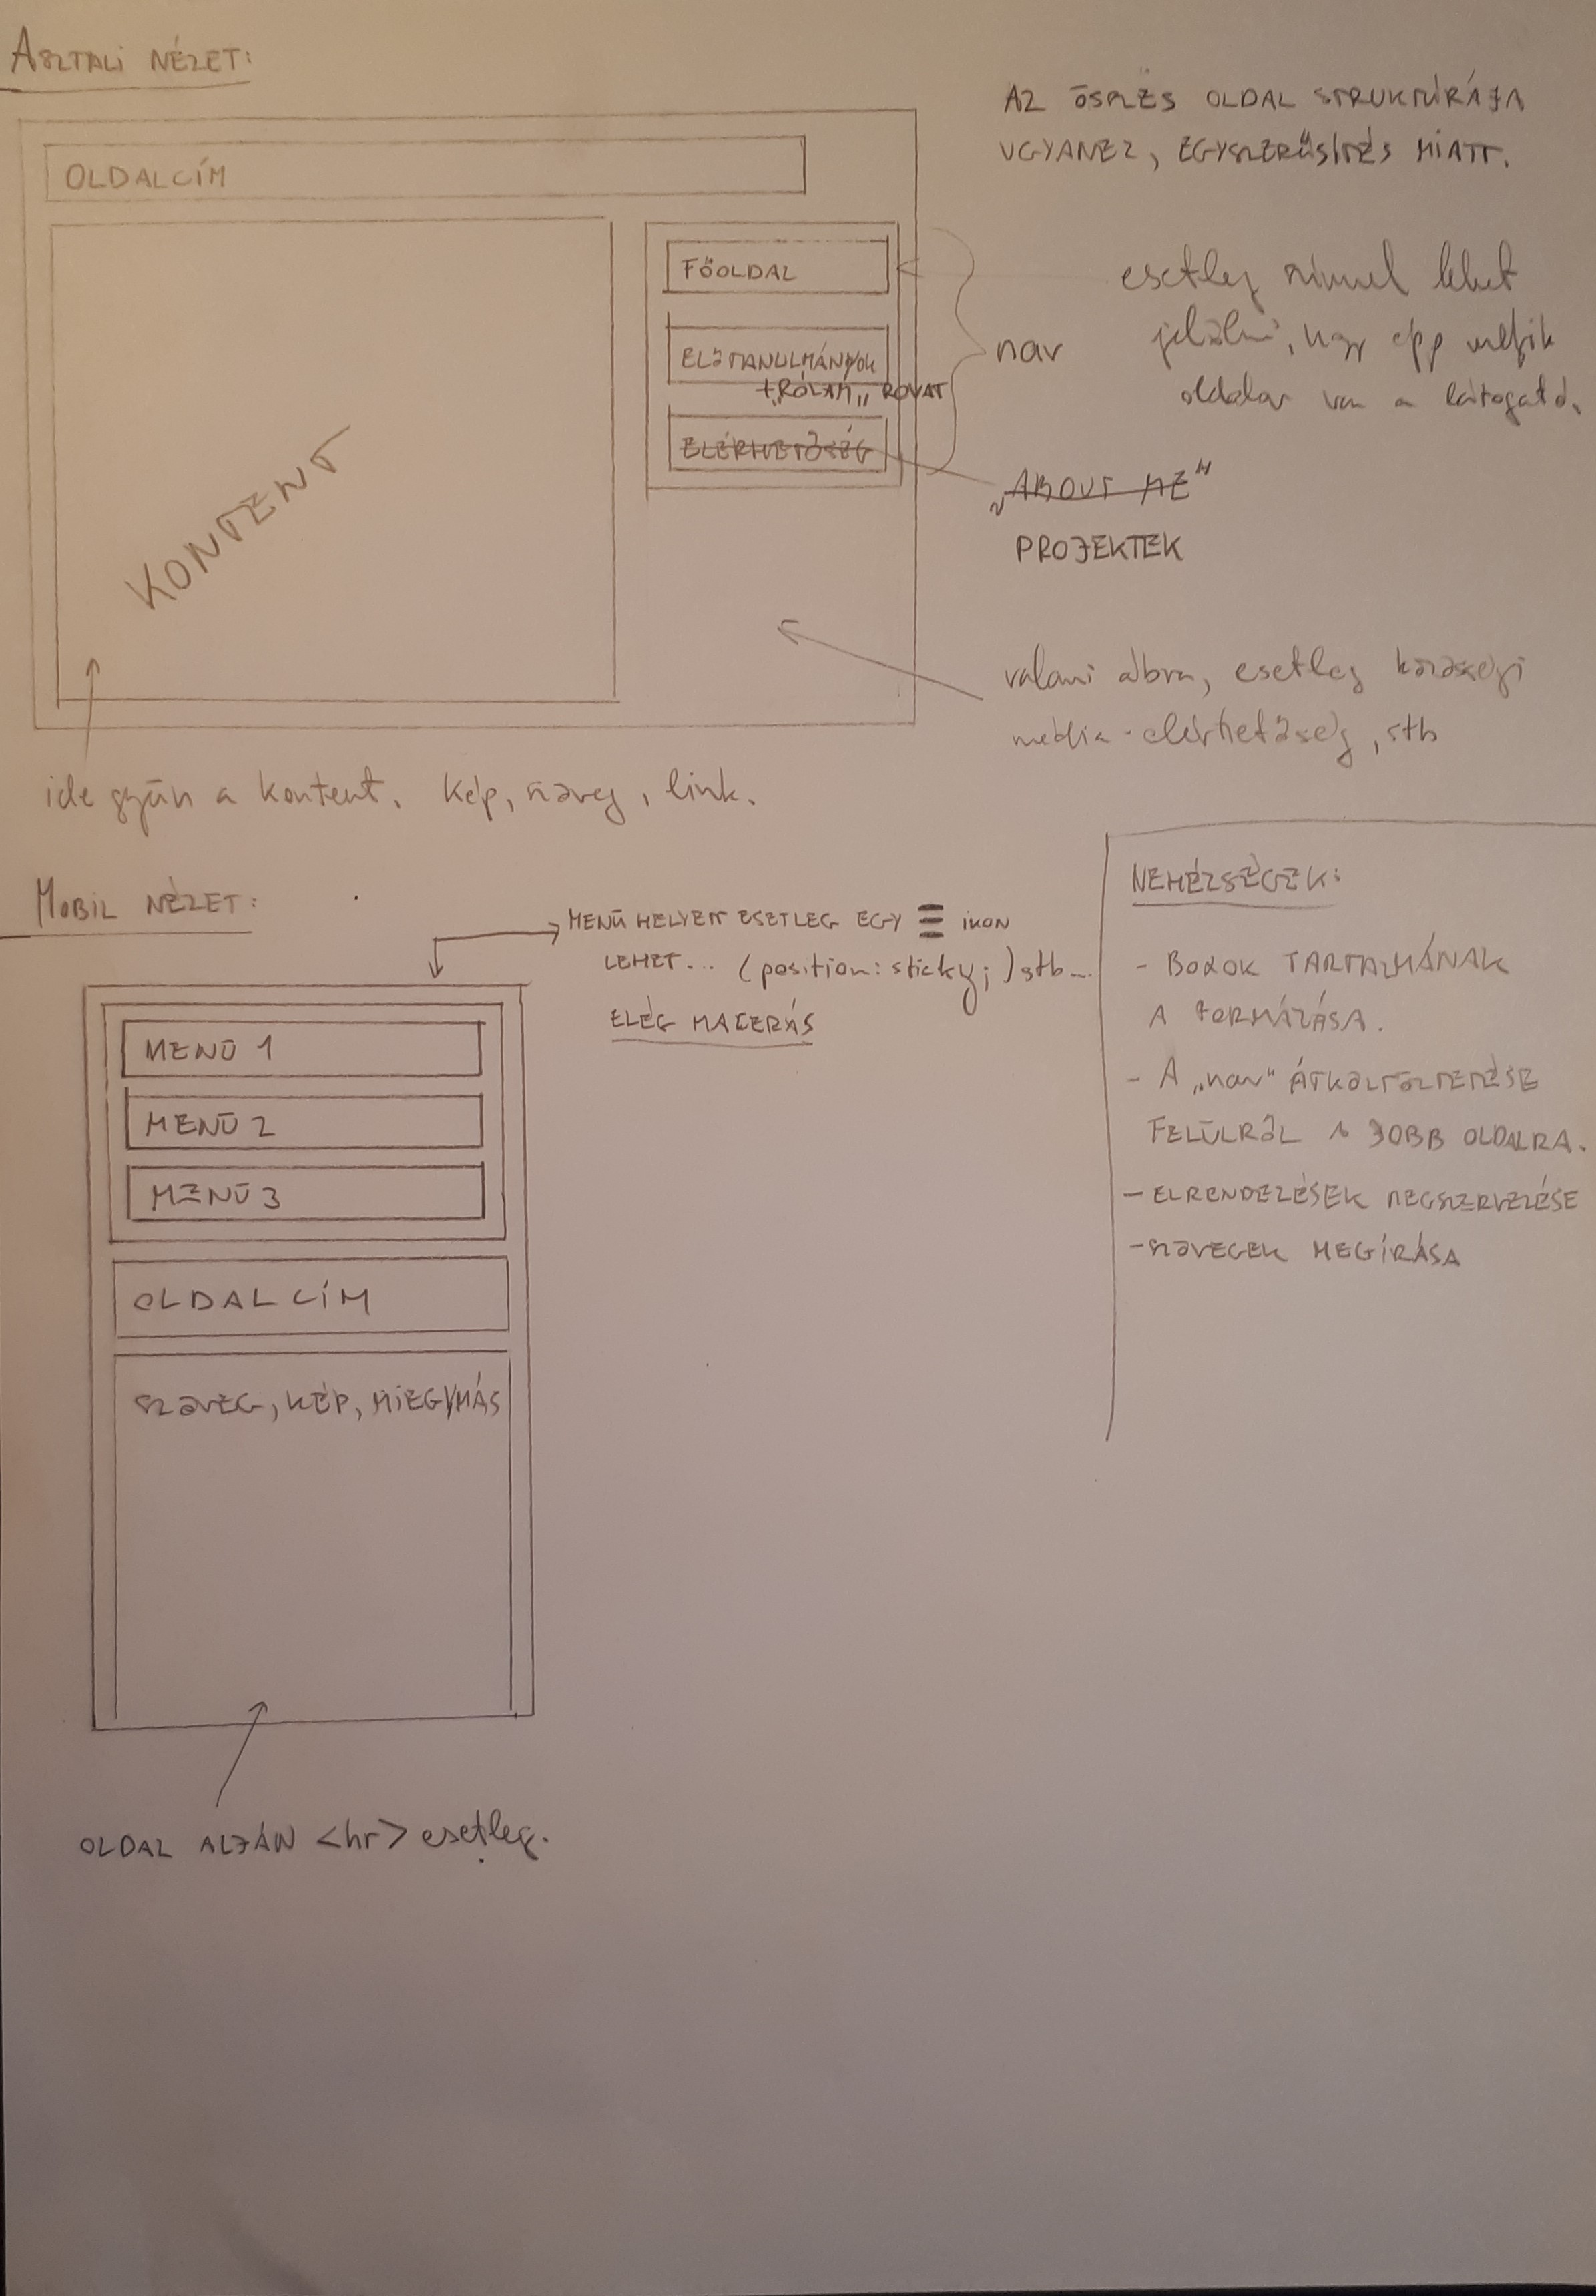 ASZTALI NÉZET:
AZ ÖSSZES OLDAL STRUKTÚRÁJA
UGYANEZ, EGYSZERŰSÍTÉS MIATT.
OLDALCÍM
FŐOLDAL
esetleg színnel lehet
jelölni, hogy épp melyik
oldalon van a látogató.
nav
ELŐTANULMÁNYOK
+„RÓLAM„ ROVAT
ELÉRHETŐSÉG
„ABOUT ME"
PROJEKTEK
KONTENT
valami ábra, esetleg közösségi
média-elérhetőség, stb
ide gyün a kontent. Kép, szöveg, link.
MOBIL NÉZET:
MENÜ HELYETT ESETLEG EGY ☰ IKON
LEHET... (position: sticky;) stb...
ELÉG MACERÁS
MENÜ 1
MENÜ 2
MENÜ 3
OLDALCÍM
SZÖVEG, KÉP, MIEGYMÁS
OLDAL ALJÁN <hr> esetleg.
NEHÉZSÉGEK:
- BOXOK TARTALMÁNAK
A FORMÁZÁSA.
- A „nav" ÁTKÖLTÖZTETÉSE
FELÜLRŐL A JOBB OLDALRA.
- ELRENDEZÉSEK MEGSZERVEZÉSE
- SZÖVEGEK MEGÍRÁSA